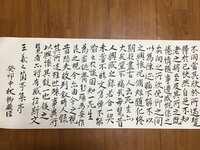 不同當其欣於所遇暫
得於己快然自足不知
老之將至及其所之既
惓情隨事遷感慨係之矣
向之所欣俛仰之間
以為陳迹猶不能不以
之興懷況脩短隨化終
期於盡古人云死生亦
大矣豈不痛哉每覽昔
人興感之由若合一契
未嘗不臨文嗟悼不能
喻之於懷固知一死生
為虛誕齊彭殤為妄作
後之視今亦由今之視
昔悲夫故列敘時人錄
其所述雖世殊事異所以
興懷其致一也後之
覽者亦將有感於斯文
王羲之蘭亭集序
癸卯年秋柳